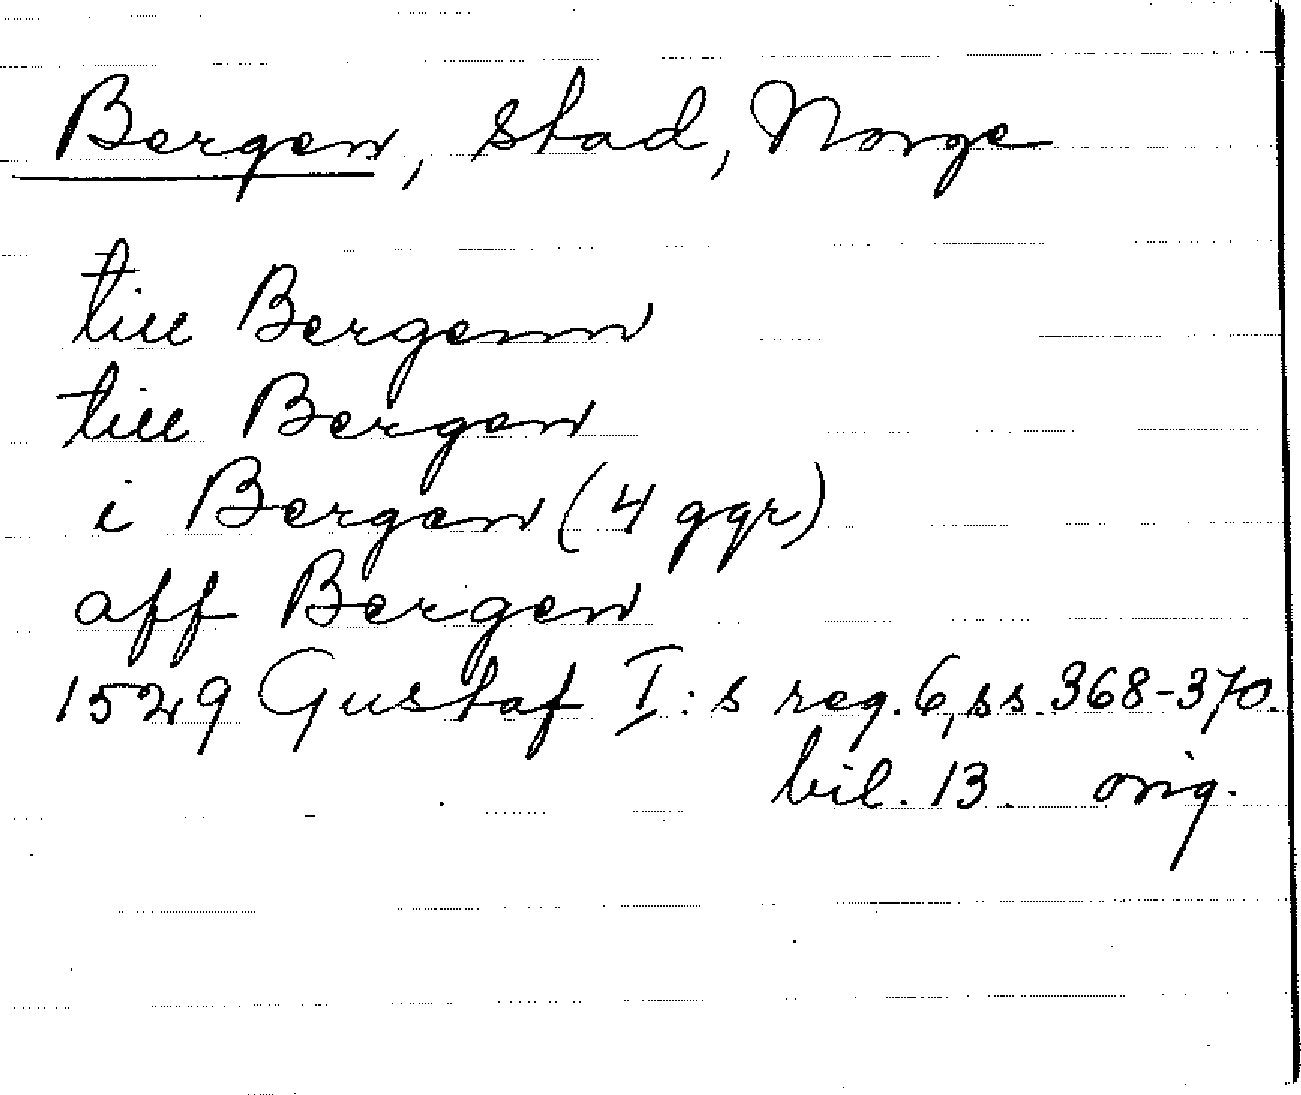 Bergen, stad, Norge
till Bergenn
till Bergen
i Bergen (4 ggr)
aff Bergen
1529 Gustaf I:s reg. 6, ss. 368-370.
bil. 13. orig.